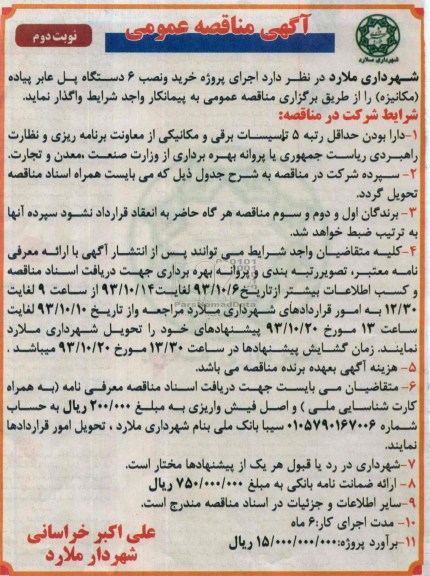 آگهی مناقصه عمومی
نوبت دوم
شهرداری ملارد
شهرداری ملارد در نظر دارد اجرای پروژه خرید ونصب ۶ دستگاه پل عابر پیاده
(مکانیزه) را از طریق برگزاری مناقصه عمومی به پیمانکار واجد شرایط واگذار نماید.
شرایط شرکت در مناقصه:
۱-دارا بودن حداقل رتبه ۵ تاسیسات برقی و مکانیکی از معاونت برنامه ریزی و نظارت
راهبردی ریاست جمهوری یا پروانه بهره برداری از وزارت صنعت ،معدن و تجارت.
۲- سپرده شرکت در مناقصه به شرح جدول ذیل که می بایست همراه اسناد مناقصه
تحویل گردد.
۳- برندگان اول و دوم و سوم مناقصه هر گاه حاضر به انعقاد قرارداد نشود سپرده آنها
به ترتیب ضبط خواهد شد.
۴-کلیه متقاضیان واجد شرایط می توانند پس از انتشار آگهی با ارائه معرفی
نامه معتبر، تصویررتبه بندی و پروانه بهره برداری جهت دریافت اسناد مناقصه
و کسب اطلاعات بیشتر ازتاریخ ۹۳/۱۰/۶ لغایت ۹۳/۱۰/۱۴ از ساعت ۹ لغایت
۱۲/۳۰ به امور قراردادهای شهرداری ملارد مراجعه واز تاریخ ۹۳/۱۰/۱۰ لغایت
ساعت ۱۳ مورخ ۹۳/۱۰/۲۰ پیشنهادهای خود را تحویل شهرداری ملارد
نمایند. زمان گشایش پیشنهادها در ساعت ۱۳/۳۰ مورخ ۹۳/۱۰/۲۰ میباشد .
۵- هزینه آگهی بعهده برنده مناقصه می باشد.
۶- متقاضیان می بایست جهت دریافت اسناد مناقصه معرفی نامه (به همراه
کارت شناسایی ملی ) و اصل فیش واریزی به مبلغ ۲۰۰/۰۰۰ ریال به حساب
شماره ۰۱۰۵۷۹۰۱۶۷۰۰۶ سیبا بانک ملی بنام شهرداری ملارد ، تحویل امور قراردادها
نمایند.
۷-شهرداری در رد یا قبول هر یک از پیشنهادها مختار است.
۸- ارائه ضمانت نامه بانکی به مبلغ ۷۵۰/۰۰۰/۰۰۰ ریال
۹-سایر اطلاعات و جزئیات در اسناد مناقصه مندرج است.
۱۰- مدت اجرای کار:۶ ماه
۱۱-برآورد پروژه:۱۵/۰۰۰/۰۰۰/۰۰۰ ریال
علی اکبر خراسانی
شهردار ملارد